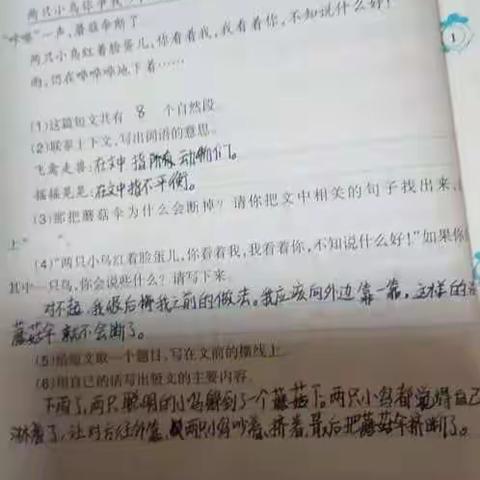 两只小鸟你争我
"哗啦"一声,蘑菇伞断了
两只小鸟红着脸蛋儿,你看着我,我看着你,不知说什么好!
雨,仍在哗哗哗地下着……
1
(1)这篇短文共有 8 个自然段。
(2)联系上下文,写出词语的意思。
飞禽走兽:在文中指所有动物们。
摇摇晃晃:在文中指不平衡。
(3)那把蘑菇伞为什么会断掉?请你把文中相关的句子找出来,
上" "。
(4)"两只小鸟红着脸蛋儿,你看着我,我看着你,不知说什么好!"如果你
其中一只鸟,你会说些什么?请写下来。
对不起,我很后悔我之前的做法。我应该向外边靠一靠,这样的话
蘑菇伞就不会断了。
(5)给短文取一个题目,写在文前的横线上。
(6)用自己的话写出短文的主要内容。
下雨了,两只聪明的小鸟躲到了一个蘑菇下,两只小鸟都觉得自己
淋着了,让对方往外靠,两只小鸟吵着、挤着,最后把蘑菇伞挤断了。